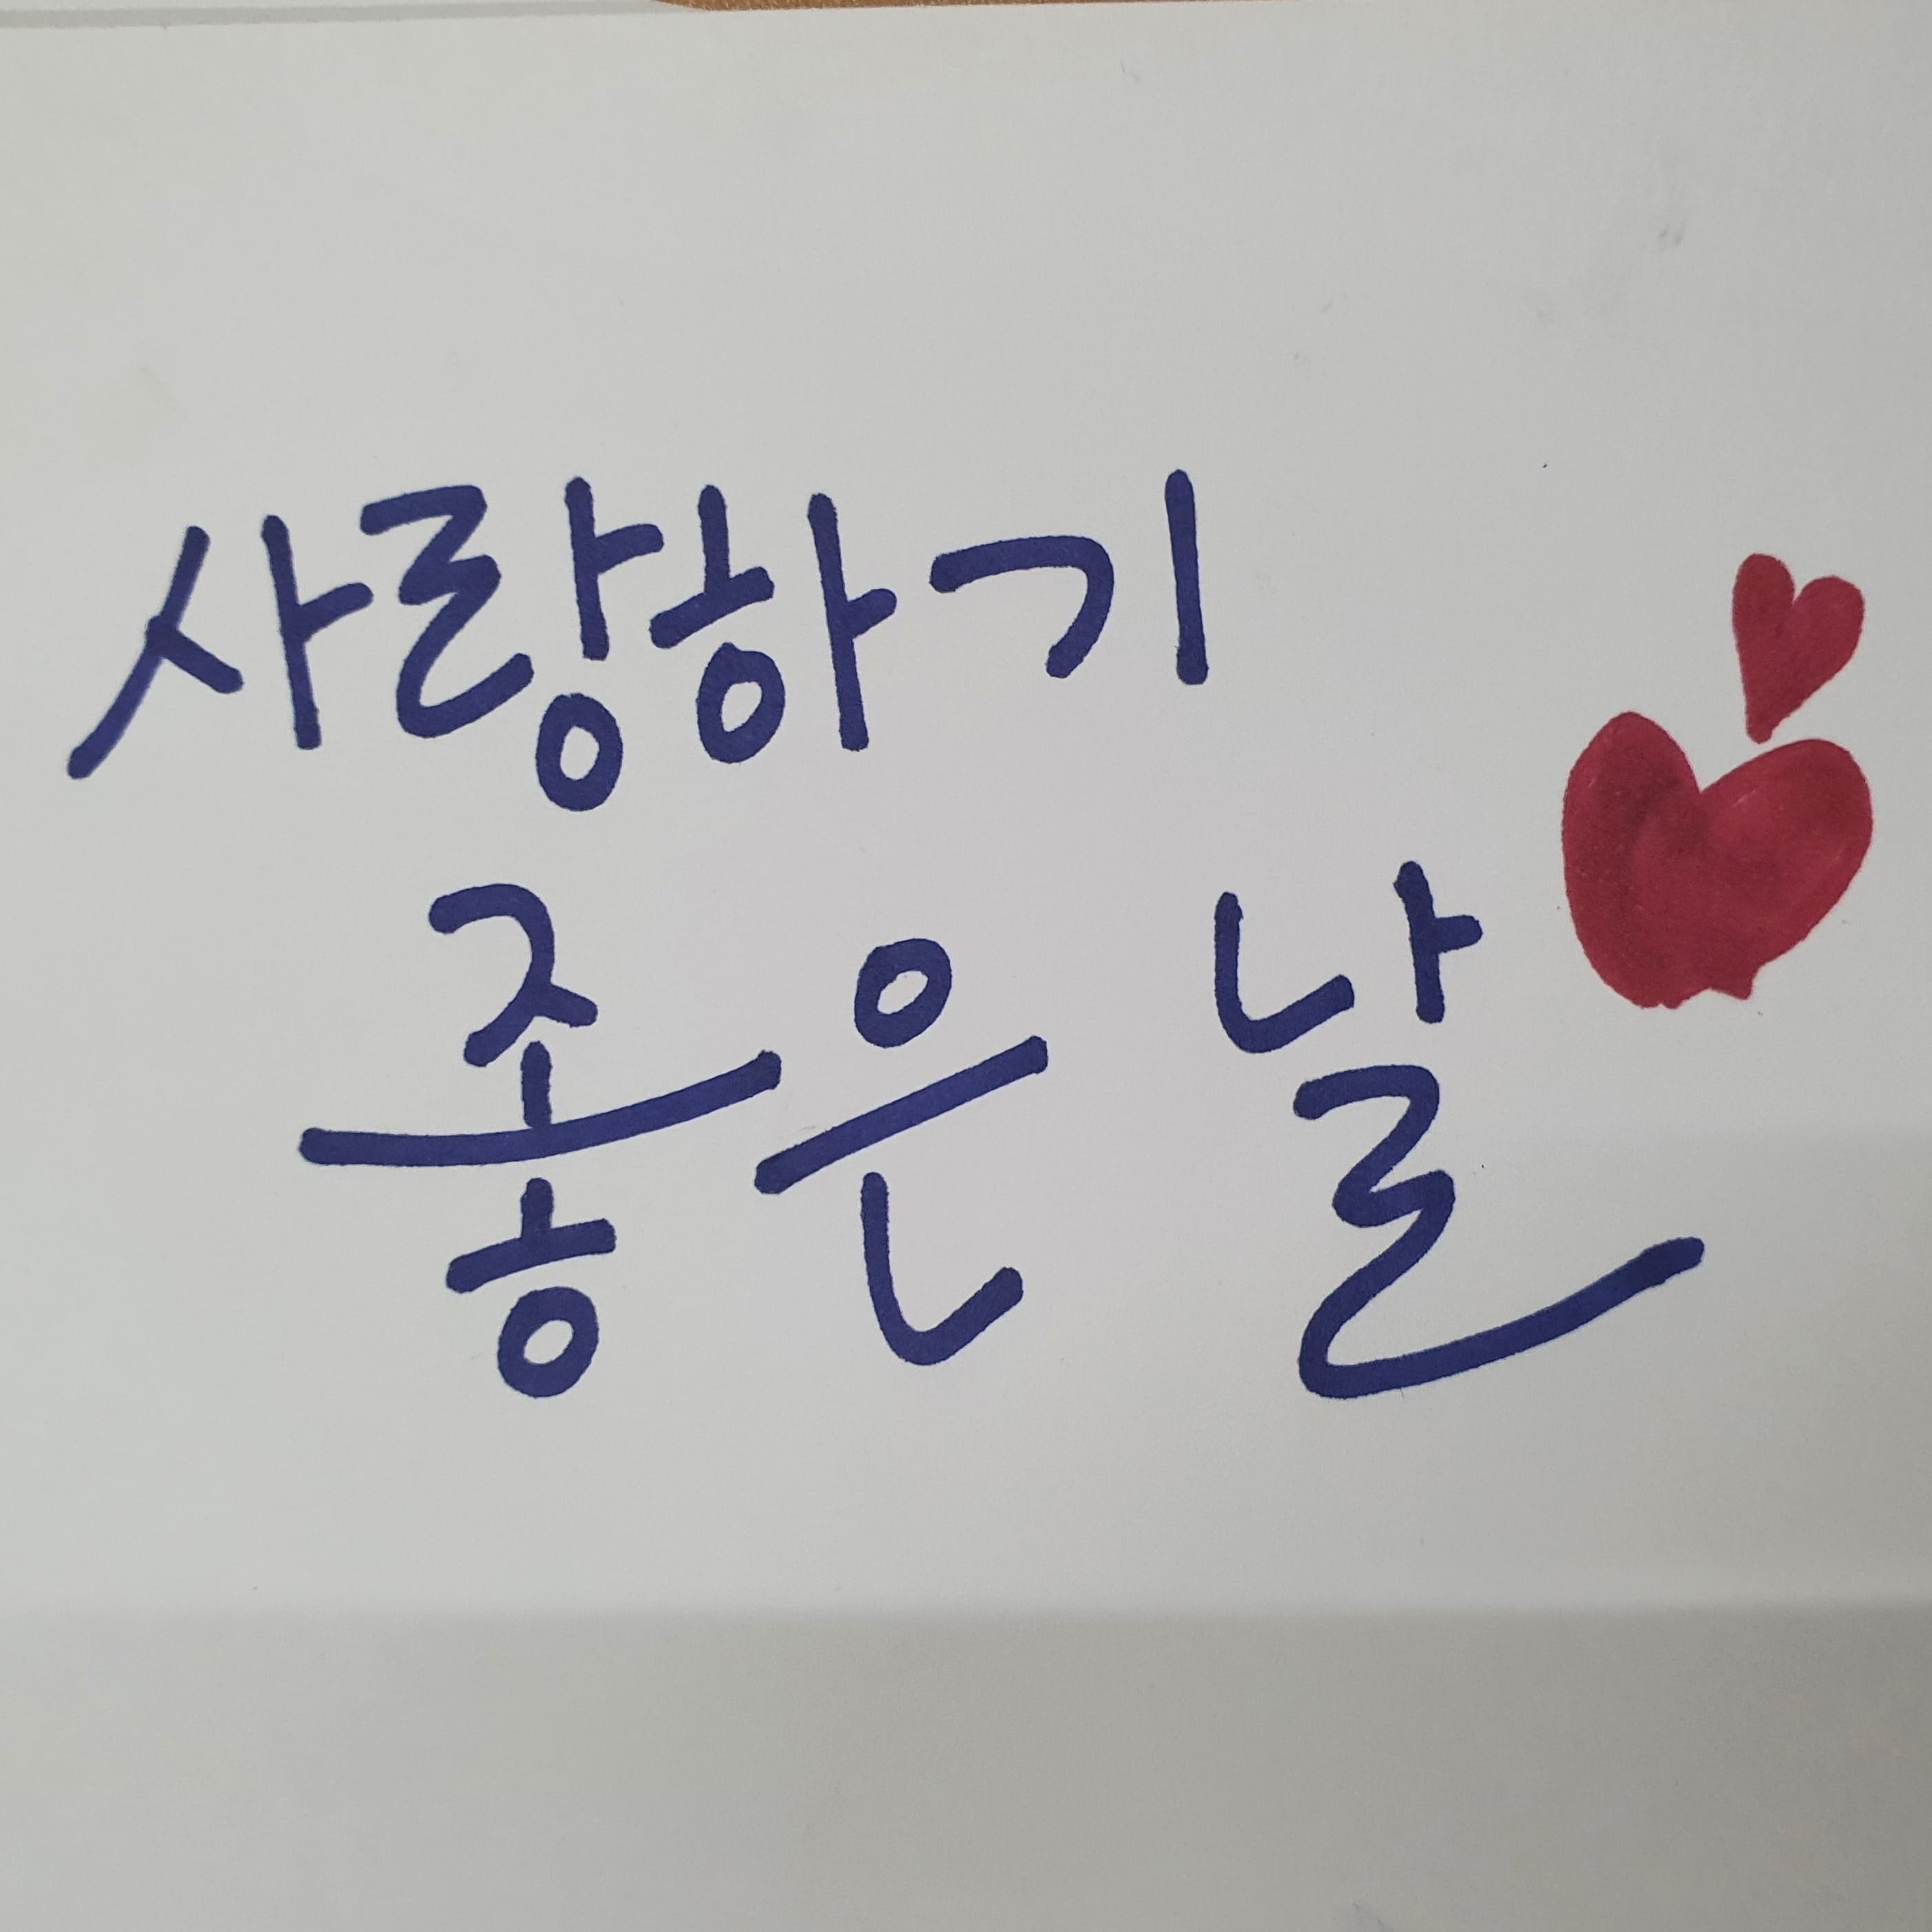 사랑하기
좋은 날